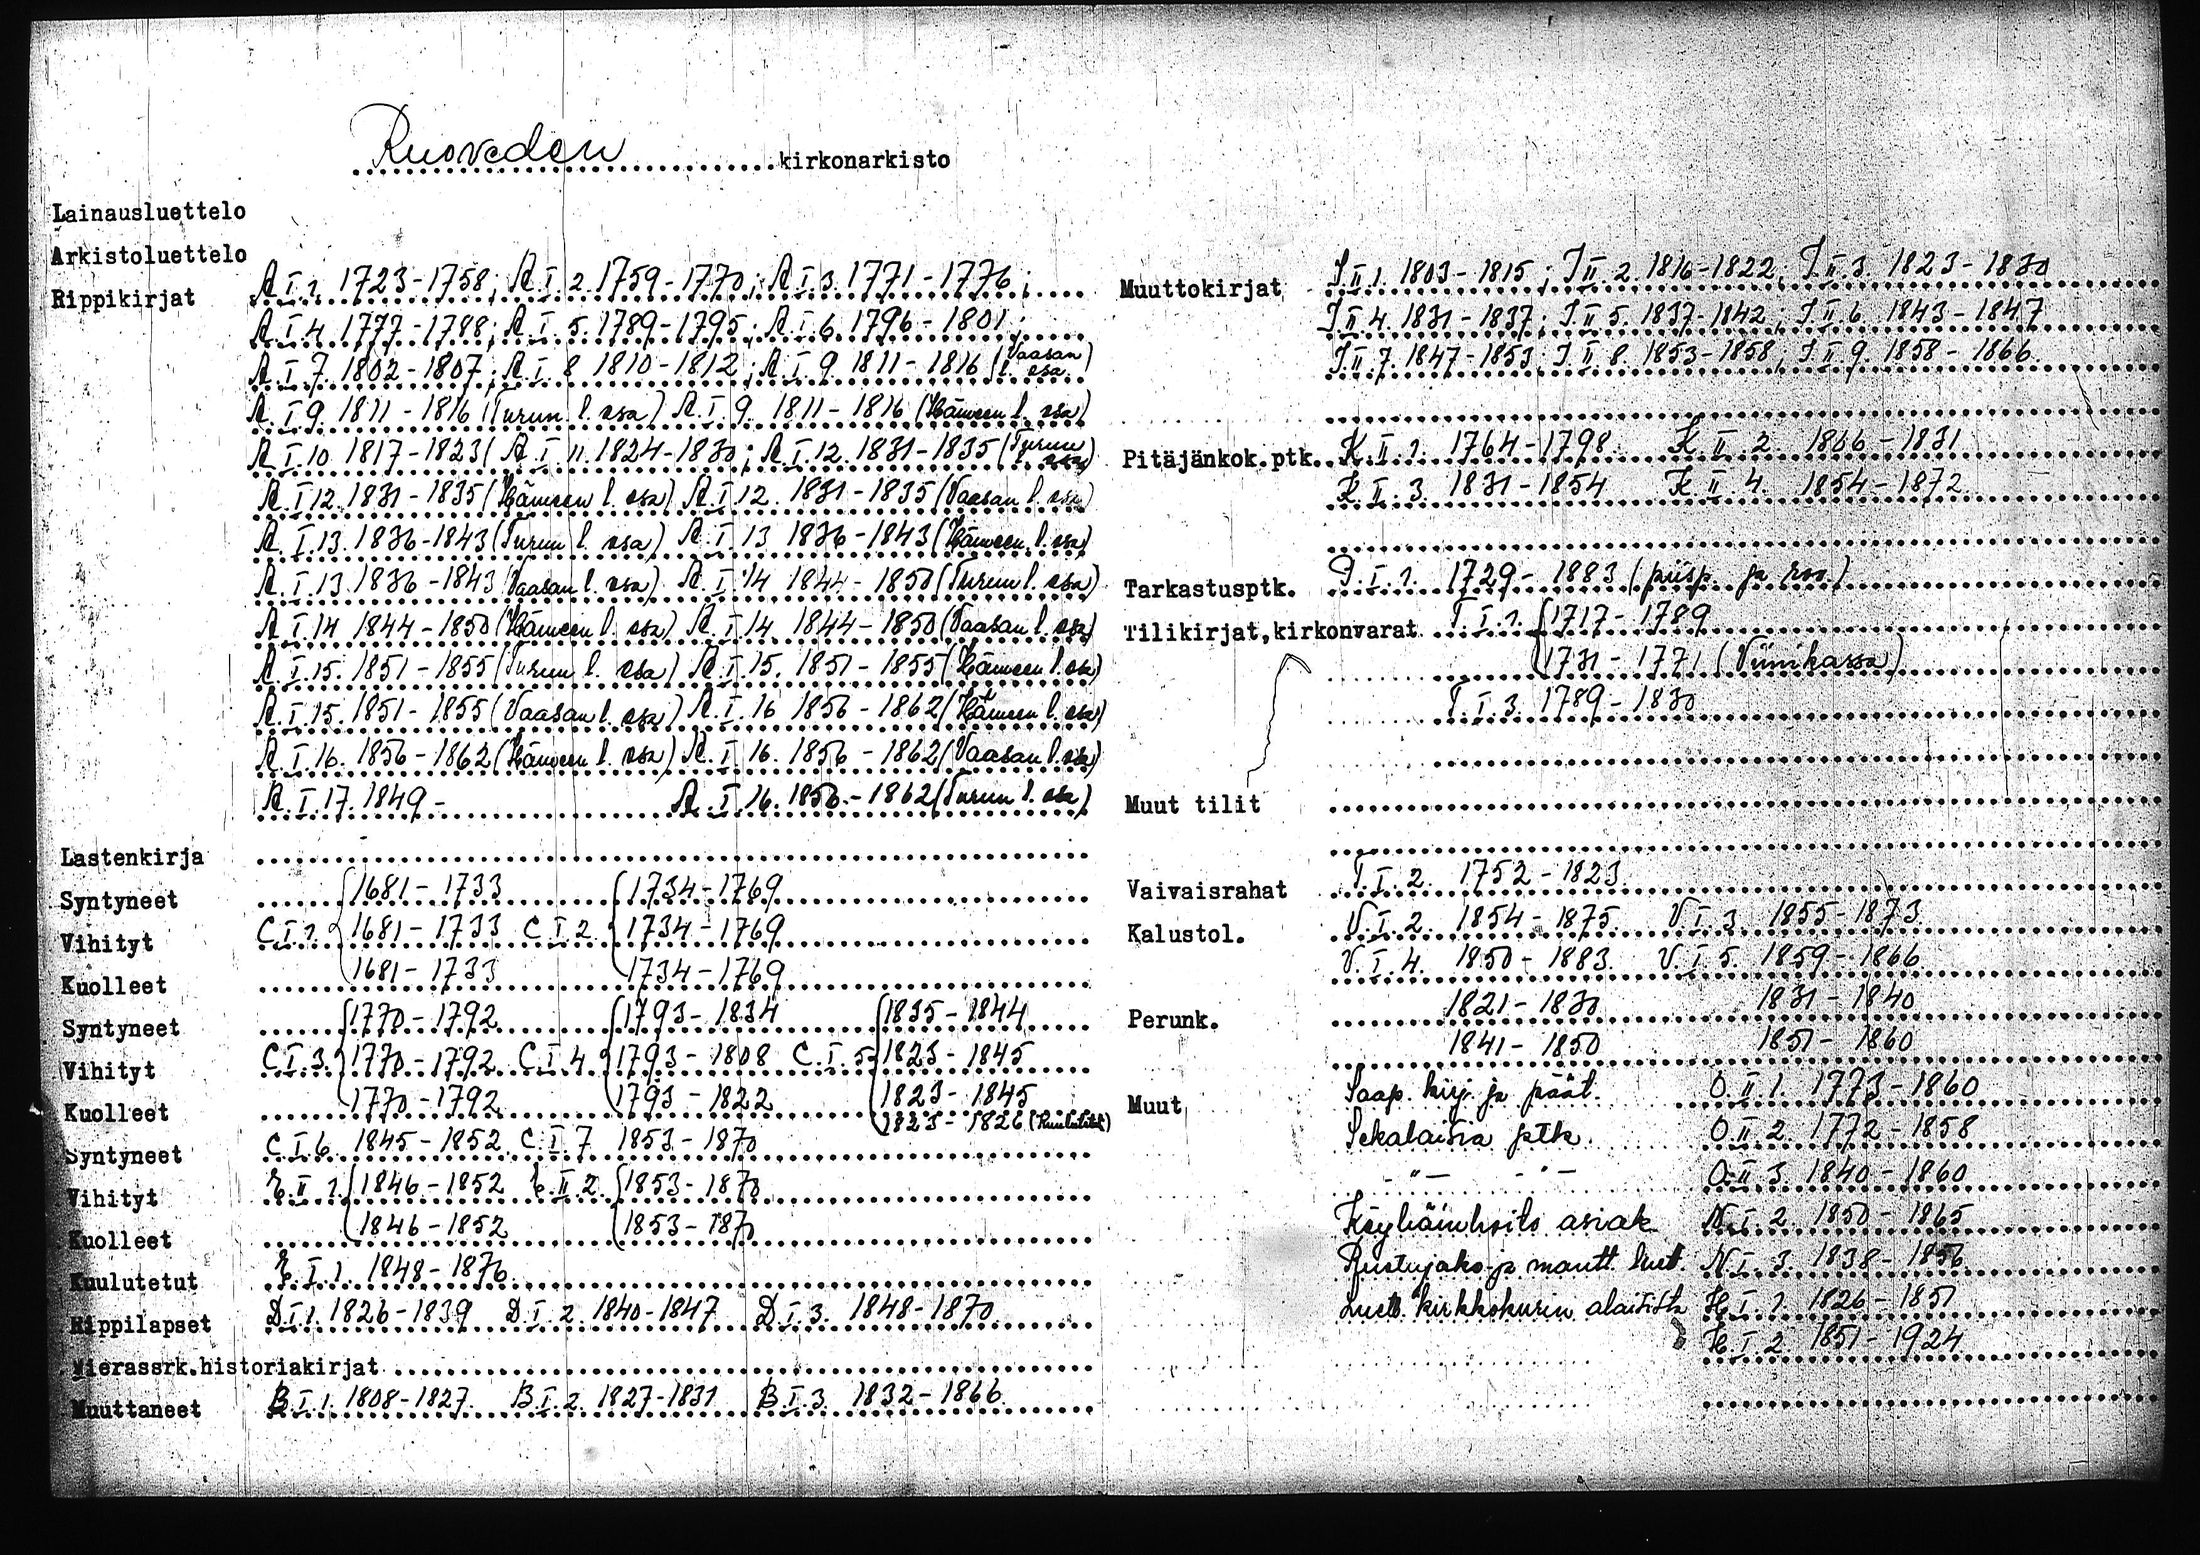 Ruoveden kirkonarkisto
Lainausluettelo
Arkistoluettelo
Rippikirjat A.I.1. 1723-1758; A.I.2. 1759-1770; A.I.3. 1771-1776;
A.I.4. 1777-1788; A.I.5. 1789-1795; A.I.6. 1796-1801;
A.I.7. 1802-1807; A.I.8. 1810-1812; A.I.9. 1811-1816 (Vaasan l. osa)
A.I.9. 1811-1816 (Turun l. osa) A.I.9. 1811-1816 (Hämeen l. osa)
A.I.10. 1817-1823( A.I.11. 1824-1830; A.I.12. 1831-1835 (Turun l. osa)
A.I.12. 1831-1835 (Hämeen l. osa) A.I.12. 1831-1835 (Vaasan l. osa)
A.I.13. 1836-1843 (Turun l. osa) A.I.13 1836-1843 (Hämeen l. osa)
A.I.13. 1836-1843 (Vaasan l. osa) A.I.14 1844-1850 (Turun l. osa)
A.I.14 1844-1850 (Hämeen l. osa) A.I.14 1844-1850 (Vaasan l. osa)
A.I.15. 1851-1855 (Turun l. osa) A.I.15. 1851-1855 (Hämeen l. osa)
A.I.15. 1851-1855 (Vaasan l. osa) A.I.16 1856-1862 (Hämeen l. osa)
A.I.16. 1856-1862 (Hämeen l. osa) A.I.16. 1856-1862 (Vaasan l. osa)
A.I.17. 1849- A.I.16. 1856-1862 (Turun l. osa)
Lastenkirja
Syntyneet 1681-1733 1734-1769
Vihityt C.I.1. 1681-1733 C.I.2. 1734-1769
Kuolleet 1681-1733 1734-1769
Syntyneet 1770-1792 1793-1834 1835-1844
Vihityt C.I.3. 1770-1792 C.I.4. 1793-1808 C.I.5. 1823-1845
Kuolleet 1770-1792 1793-1822 1823-1845
1823-1826 (Kuulutetut)
Syntyneet C.I.6. 1845-1852 C.I.7. 1853-1870
Vihityt E.II.1. 1846-1852 E.II.2. 1853-1870
Kuolleet 1846-1852 1853-187
Kuulutetut E.I.1. 1848-1870
Rippilapset D.I.1. 1826-1839 D.I.2. 1840-1847 D.I.3. 1848-1870
Vierassrk.historiakirjat
Muuttaneet B.I.1. 1808-1827. B.I.2. 1827-1831 B.I.3. 1832-1866
Muuttokirjat J.II.1. 1803-1815; J.II.2. 1816-1822; J.II.3. 1823-1830
J.II.4. 1831-1837; J.II.5. 1837-1842; J.II.6. 1843-1847
J.II.7. 1847-1853; J.II.8. 1853-1858; J.II.9. 1858-1866
Pitäjänkok.ptk. K.II.1. 1764-1798 K.II.2 1806-1831
K.II.3. 1831-1854 K.II.4. 1854-1872
Tarkastusptk. P.I.1. 1729-1883 (piisp. ja rov.)
Tilikirjat,kirkonvarat T.I.1. 1717-1789
1731-1771 (Viinikassa)
T.I.3. 1789-1830
Muut tilit
Vaivaisrahat T.I.2. 1752-1823
Kalustol. V.I.2. 1854-1875 V.I.3 1855-1873
V.I.4. 1850-1883 V.I.5. 1859-1866
Perunk. 1821-1830 1831-1840
1841-1850 1851-1860
Muut Saap. kirj. ja päät. O.II.1. 1773-1860
Sekalaisia ptk. O.II.2 1772-1858
-"- -"- O.II.3 1840-1860
Köyhäinhoito asiak N.I.2. 1850-1865
Ruotujako ja mantt. luet. N.I.3. 1838-1856
Luett. kirkkokurin alaisista H.I.1. 1826-1851
H.I.2. 1851-1924